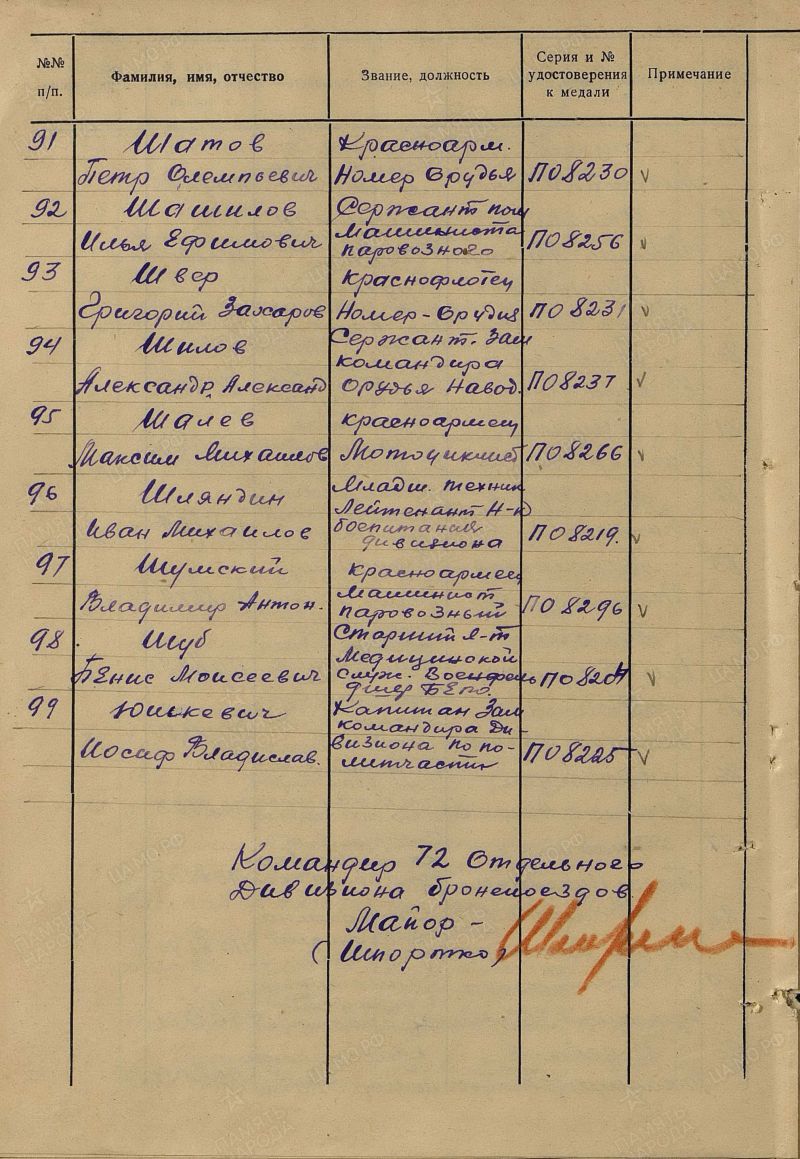 №№ п/п. Фамилия, имя, отчество Звание, должность Серия и № удостоверения к медали Примечание
91 Шатов Красноарм.
Петр Олемпьевич Номер Орудья ПО8230 v
92 Шашилов Сержант пом
Илья Ефимович Машиниста паровозного ПО8256 v
93 Швер Краснофлотец
Григорий Захаров Номер-Орудия ПО8231 v
94 Шилов Сержант. Зам
командира
Александр Александ Орудья Навод. ПО8237 v
95 Шалев красноармец
Максим Михаилов Мотоциклист ПО8266 v
96 Шляндин Младш. техник
Лейтенант Н-к
Иван Михаилов боепитания
дивизиона ПО8219. v
97 Шумский красноармец
Машинист
Владимир Антон. паровозный ПО8296 v
98. Шуб Старший л-т
Медицинской
Бенис Моисеевич служ. Военфель ПО8204 v
дшер БЕПО
99 Юшкевич Капитан Зам
командира Ди-
Иосиф Владислав. визиона по по- ПО8225 v
литчасти
Командир 72 Отдельного
Дивизиона бронепоездов
Майор -
(Шпортко)
ЦАМО.РФ
ПАМЯТЬ НАРОДА